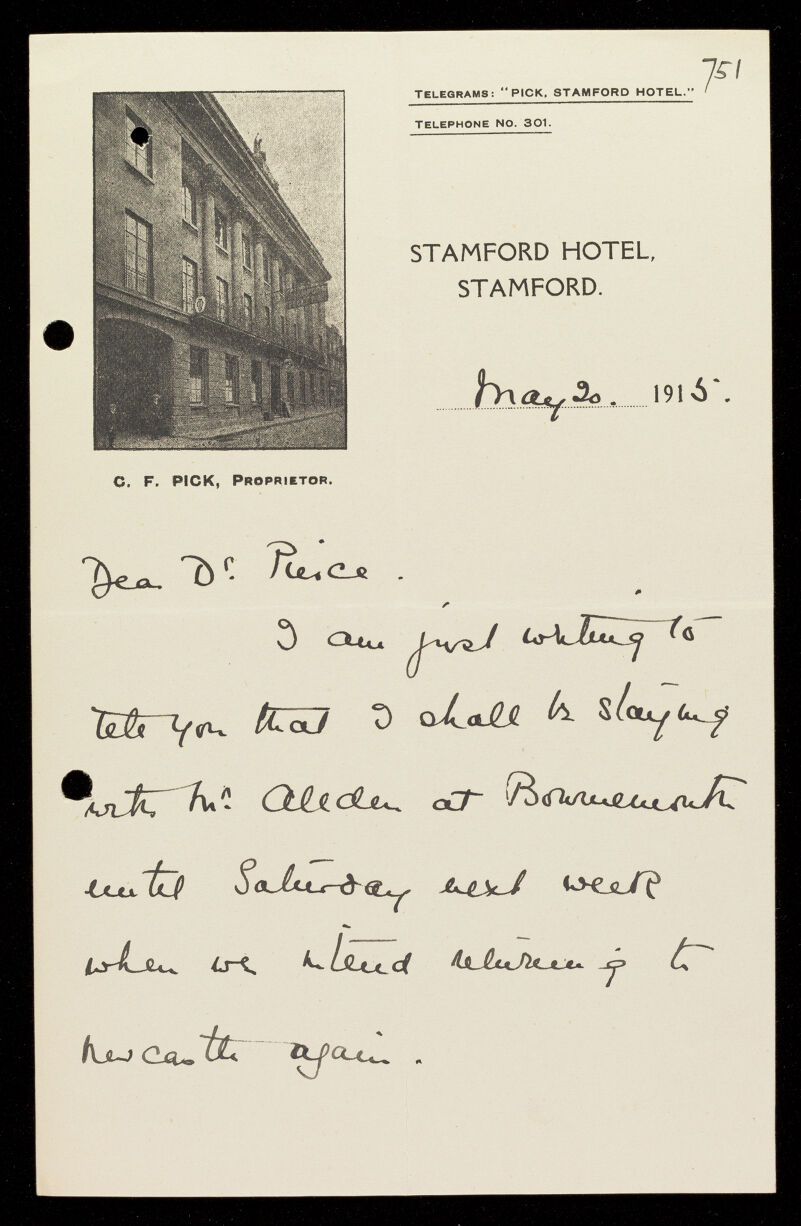 751
TELEGRAMS: "PICK, STAMFORD HOTEL."
TELEPHONE NO. 301.
STAMFORD HOTEL,
STAMFORD.
May 20. 1915.
C. F. PICK, PROPRIETOR.
Dear Dr. Pierce.
I am just writing to
tell you that I shall be staying
with Mr. Allden at Bournemouth
until Saturday next week
when we intend returning to
Newcastle again.